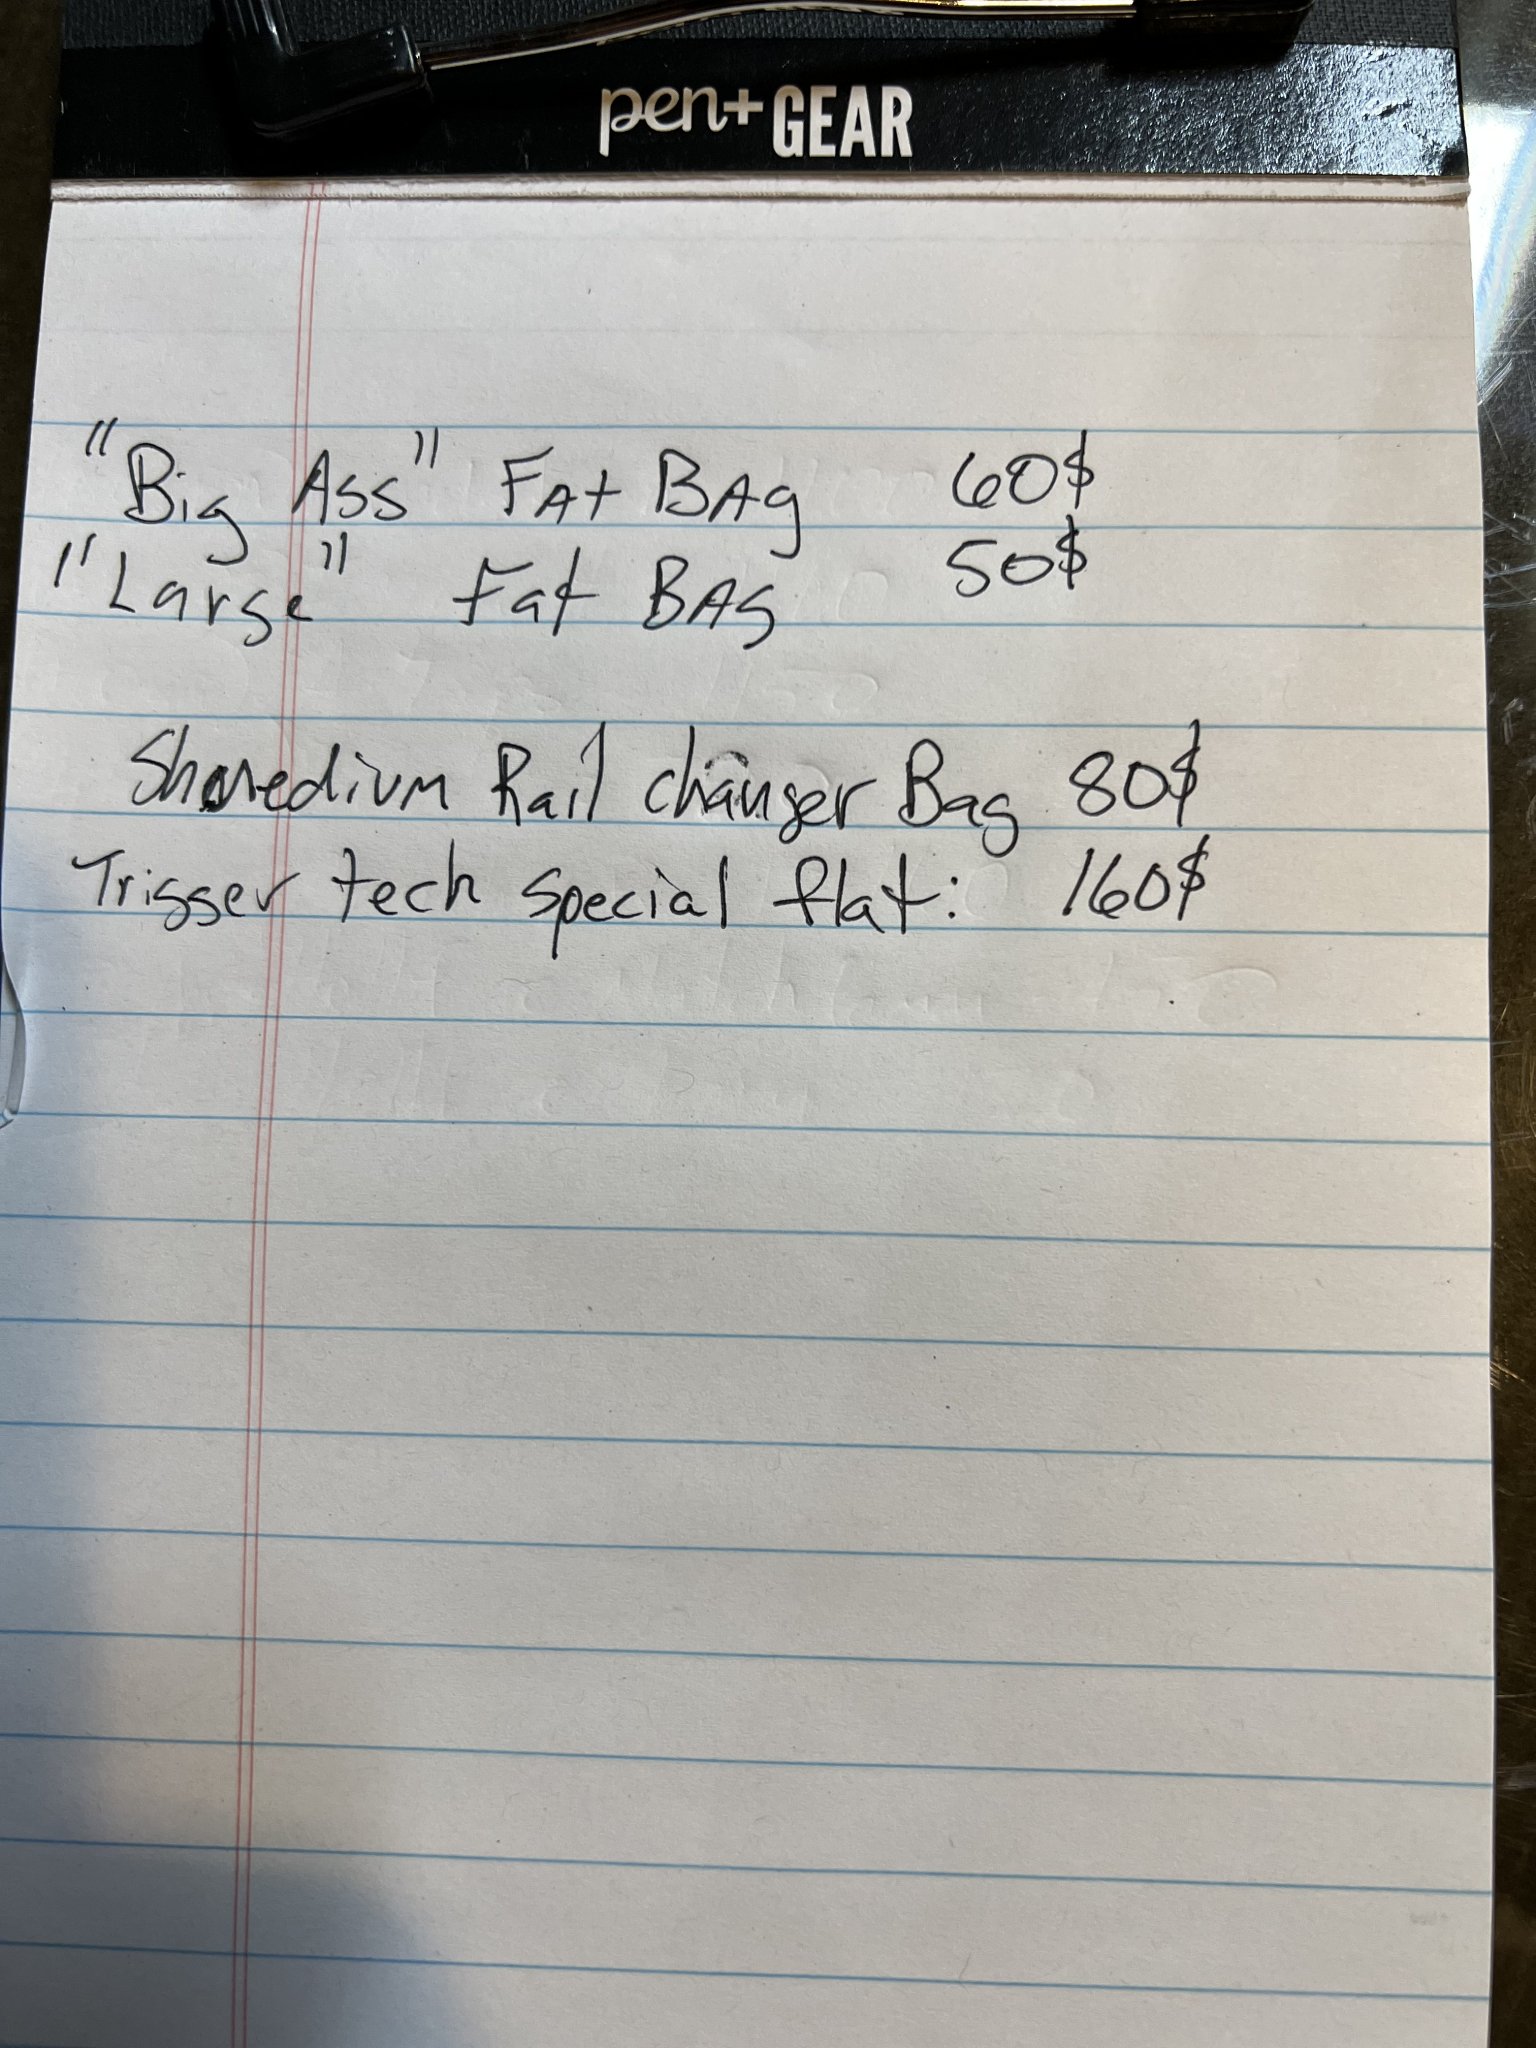 pen+GEAR
"Big Ass" FAt BAg 60$
"Large" Fat BAg 50$
Shmedium Rail changer Bag 80$
Trigger tech special flat: 160$